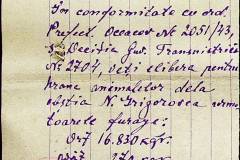 In conformitate cu ord.
Prefect. Oceacov № 2051/43,
și Decizia Guv. Transnistriei
№ 2704, veți elibera pentru
hrana animalelor dela
obștia N. Grigorescu urmă-
toarele furaje:
Orz 16.830 kgr.
270 kgr.